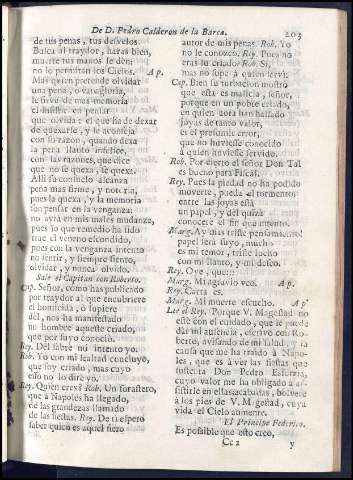 De D. Pedro Calderon de la Barca. 203
de tus penas, tus desvelos.
Busca al traydor, harás bien,
muerte tus manos le dèn;
no le permitan los Cielos. Ap.
Mas quien pretende olvidar
una pena, ò vateguria,
le sirve de mas memoria
el insistir en pensar
que olvida: el que ha de dexar
de quexarse, y le aconseja
con su razon, quando dexa
la pena llanto infelice,
con las razones, que dice
que no se quexa, se quexa.
Alli su consuelo alcanza
pena mas firme, y notoria,
pues la quexa, y la memoria
son pensar en la venganza:
no avrá en mis males mudanza,
pues lo que remedio ha sido
trae el veneno escondido,
pues con la venganza intento
no sentir, y siempre siento,
olvidar, y nunca olvido.
Sale el Capitan con Roberto.
Cap. Señor, còmo has publicado
por traydor al que encubriere
el homicida, ò supiere
dèl, nos ha manifestado
un hombre aqueste criado,
que por suyo conocio.
Rey. Del sabrè mi intento yo.
Rob. Yo con mi lealtad concluyo,
que soy criado, mas cuyo
esso no lo dirè yo.
Rey. Quien eres? Rob. Un forastero,
que à Napoles ha llegado,
de las grandezas llamado
de las fiestas. Rey. De ti espero
saber quien es aquel fiero
autor de mis penas. Rob. Yo
no le conozco. Rey. Pues no
eras su criado? Rob. Si,
mas no supe à quien serví.
Cap. Bien su turbacion mostrò
que està es malicia, señor,
porque en un pobre criado,
en quien aora han hallado
joyas de tanto valor,
es el presumir error,
que no huviesse conocido
à quien huviesse servido.
Rob. Por cierto el señor Don Tal
es bueno para Fiscal.
Rey. Pues la piedad no ha podido
moverte, pueda el tormento:
entre las joyas està
un papel; y del quizà
conocerè el fin que intento.
Marg. Ay mas triste pensamiento!
papel serà suyo, mucho
es mi temor, triste lucho
con mi llanto, y mi deseo.
Rey. Oye, quien:
Marg. Mi agravio veo. Ap.
Rey. Carta es.
Marg. Mi muerte escucho. Ap.
Lee el Rey. Porque V. Magestad no
estè con el cuidado, que le puede
dar mi ausencia, escrivo con Roberto,
avisando de mi salud, y la
causa que me ha traido à Napoles,
que es à ver las fiestas que
sustenta Don Pedro Esforcia,
cuyo valor me ha obligado à assistirle
en ellas: acabadas, bolverè
à los pies de V. Magestad, cuya
vida el Cielo aumente.
El Principe Federico.
Es possible que esto creo,
Cc 2 y